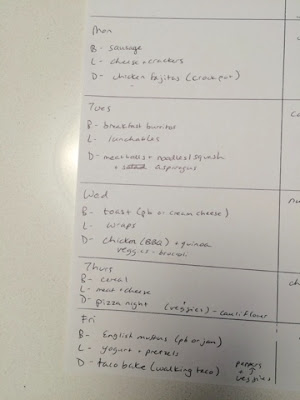 Mon
B - sausage
L - cheese + crackers
D - chicken fajitas (crockpot)
Tues
B - breakfast burritos
L - lunchables
D - meatballs + noodles/squash
+ asparagus
Wed
B - toast (pb or cream cheese)
L - wraps
D - chicken (BBQ) + quinoa
veggies - brocoli
Thurs
B - cereal
L - meat + cheese
D - pizza night (veggies) - cauliflower
Fri
B - English muffins (pb or jam)
L - yogurt + pretzels
D - taco bake (walking taco) peppers
veggies